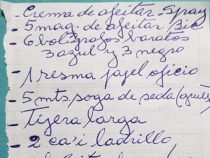 - Crema de afeitar - Spray
- 5 maq. de afeitar Bic
- 6 bolígrafos baratos
3 azul y 3 negro
- 1 resma papel oficio
- 5 mts, soga de seda (gruesa)
- Tijera larga
- 2 ca'i ladrillo,